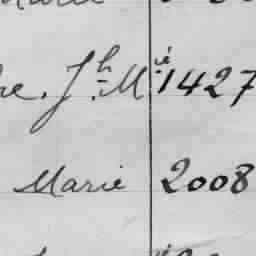 re. Jh. Mié 1427
Marie 2008